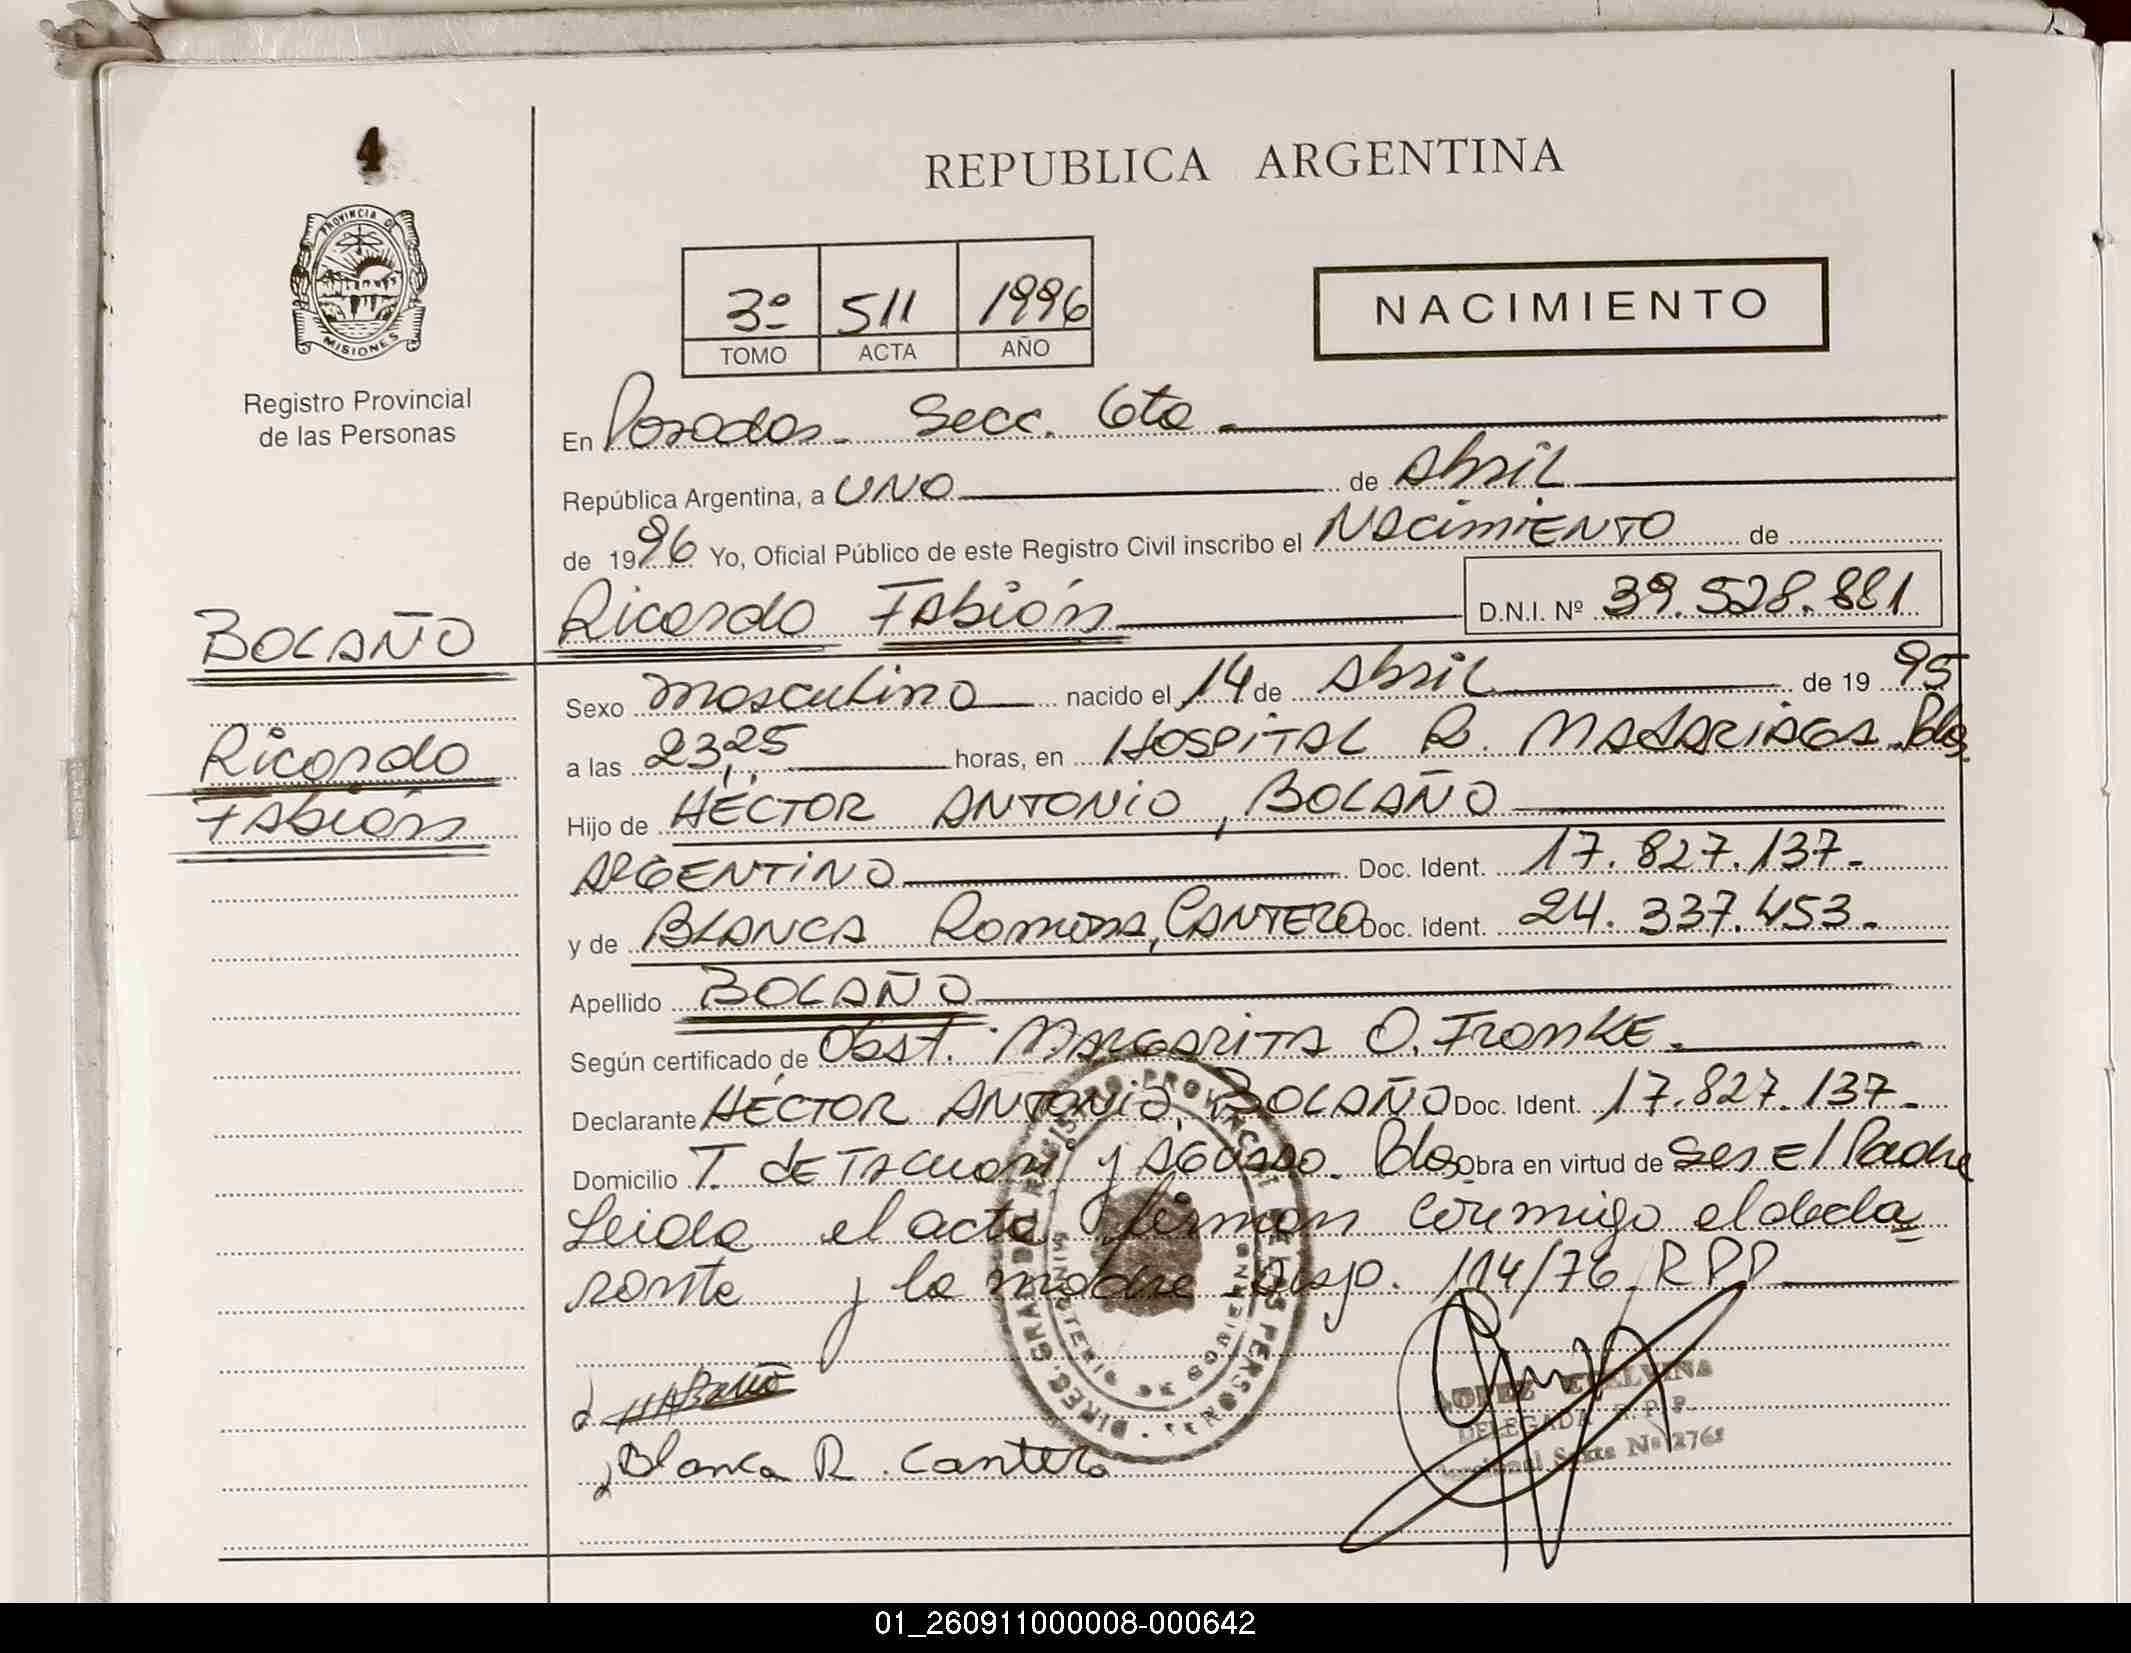 4
PROVINCIA DE
MISIONES
Registro Provincial
de las Personas
REPUBLICA ARGENTINA
3º 511 1996
TOMO ACTA AÑO
NACIMIENTO
En Posadas - Secc. 6ta -
República Argentina, a UNO de Abril
de 1996 Yo, Oficial Público de este Registro Civil inscribo el NACIMIENTO de
BOLAÑO
Ricardo Fabián D.N.I. Nº 39.528.881
Ricardo
Fabián
Sexo masculino nacido el 14 de Abril de 19 95
a las 23,25 horas, en HOSPITAL R. MADARIAGA. Pdas.
Hijo de HÉCTOR ANTONIO, BOLAÑO
ARGENTINO Doc. Ident. 17.827.137-
y de BLANCA Ramona, CANTERO Doc. Ident. 24.337.453-
Apellido BOLAÑO
Según certificado de Obst. MARGARITA O. FRANKE.
Declarante HÉCTOR ANTONIO, BOLAÑO Doc. Ident. 17.827.137-
Domicilio T. de TACUARI y AGUADO. Pdas. Obra en virtud de Ser El Padre
Leida el acta firman conmigo el decla
rante y la madre Disp. 114/76. RPP
Blanca R. Cantero
DELEGADA R.P.P.
Nº 2768
01_260911000008-000642